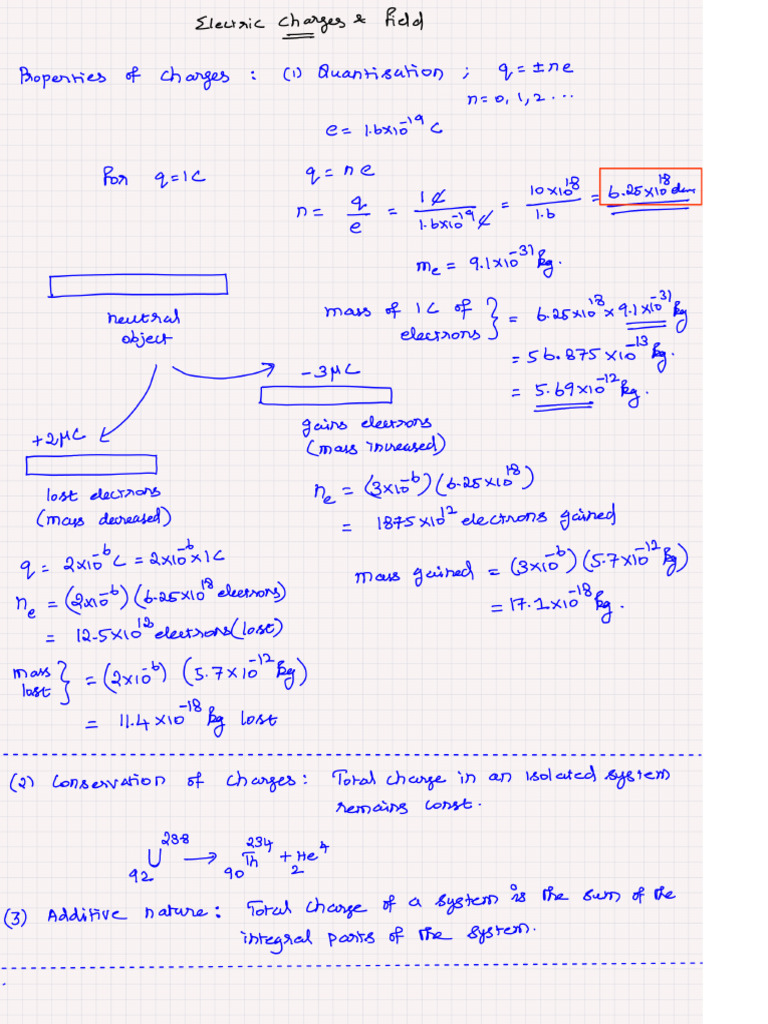 Electric Charges & Field
Properties of charges : (1) Quantisation ; q = ± n e
n = 0, 1, 2 ...
e = 1.6×10⁻¹⁹ C
For q = 1C
q = n e
n = q/e = 1 C/1.6×10⁻¹⁹ C = 10×10¹⁸/1.6 = 6.25×10¹⁸ elens
mₑ = 9.1×10⁻³¹ kg.
neutral
object
mass of 1C of
electrons } = 6.25×10¹⁸ × 9.1×10⁻³¹ kg
= 56.875×10⁻¹³ kg.
= 5.69×10⁻¹² kg.
-3μC
gains electrons
(mass increased)
+2μC
lost electrons
(mass decreased)
nₑ = (3×10⁻⁶)(6.25×10¹⁸)
= 1875×10¹² electrons gained
mass gained = (3×10⁻⁶)(5.7×10⁻¹² kg)
= 17.1×10⁻¹⁸ kg.
q = 2×10⁻⁶ C = 2×10⁻⁶ × 1C
nₑ = (2×10⁻⁶)(6.25×10¹⁸ electrons)
= 12.5×10¹² electrons (lost)
mass
lost } = (2×10⁻⁶) (5.7×10⁻¹² kg)
= 11.4×10⁻¹⁸ kg lost
(2) Conservation of charges : Total charge in an isolated system
remains const.
₉₂U²³⁸ → ₉₀Th²³⁴ + ₂He⁴
(3) Additive nature : Total charge of a system is the sum of the
integral parts of the system.